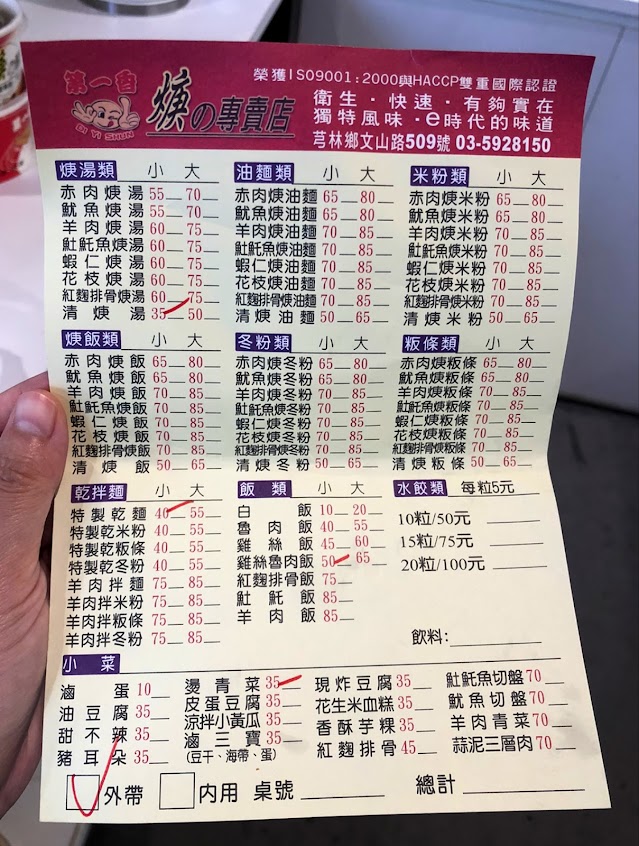 第一香
DI YI SHUN
焿の專賣店
榮獲ISO9001:2000與HACCP雙重國際認證
衛生・快速・有夠實在
獨特風味・e時代的味道
芎林鄉文山路509號 03-5928150
焿湯類 小 大
赤肉焿湯 55 70
魷魚焿湯 55 70
羊肉焿湯 60 75
𩵚魠魚焿湯 60 75
蝦仁焿湯 60 75
花枝焿湯 60 75
紅麴排骨焿湯 60 75
清焿湯 35 50
油麵類 小 大
赤肉焿油麵 65 80
魷魚焿油麵 65 80
羊肉焿油麵 70 85
𩵚魠魚焿油麵 70 85
蝦仁焿油麵 70 85
花枝焿油麵 70 85
紅麴排骨焿油麵 70 85
清焿油麵 50 65
米粉類 小 大
赤肉焿米粉 65 80
魷魚焿米粉 65 80
羊肉焿米粉 70 85
𩵚魠魚焿米粉 70 85
蝦仁焿米粉 70 85
花枝焿米粉 70 85
紅麴排骨焿米粉 70 85
清焿米粉 50 65
焿飯類 小 大
赤肉焿飯 65 80
魷魚焿飯 65 80
羊肉焿飯 70 85
𩵚魠魚焿飯 70 85
蝦仁焿飯 70 85
花枝焿飯 70 85
紅麴排骨焿飯 70 85
清焿飯 50 65
冬粉類 小 大
赤肉焿冬粉 65 80
魷魚焿冬粉 65 80
羊肉焿冬粉 70 85
𩵚魠魚焿冬粉 70 85
蝦仁焿冬粉 70 85
花枝焿冬粉 70 85
紅麴排骨焿冬粉 70 85
清焿冬粉 50 65
粄條類 小 大
赤肉焿粄條 65 80
魷魚焿粄條 65 80
羊肉焿粄條 70 85
𩵚魠魚焿粄條 70 85
蝦仁焿粄條 70 85
花枝焿粄條 70 85
紅麴排骨焿粄條 70 85
清焿粄條 50 65
乾拌麵 小 大
特製乾麵 40 55
特製乾米粉 40 55
特製乾粄條 40 55
特製乾冬粉 40 55
羊肉拌麵 75 85
羊肉拌米粉 75 85
羊肉拌粄條 75 85
羊肉拌冬粉 75 85
飯類 小 大
白飯 10 20
魯肉飯 40 55
雞絲飯 45 60
雞絲魯肉飯 50 65
紅麴排骨飯 75
𩵚魠飯 85
羊肉飯 85
水餃類 每粒5元
10粒/50元
15粒/75元
20粒/100元
飲料:
小菜
滷蛋 10
油豆腐 35
甜不辣 35
豬耳朵 35
燙青菜 35
皮蛋豆腐 35
涼拌小黃瓜 35
滷三寶 35
(豆干、海帶、蛋)
現炸豆腐 35
花生米血糕 35
香酥芋粿 35
紅麴排骨 45
𩵚魠魚切盤 70
魷魚切盤 70
羊肉青菜 70
蒜泥三層肉 70
外帶 內用 桌號 總計